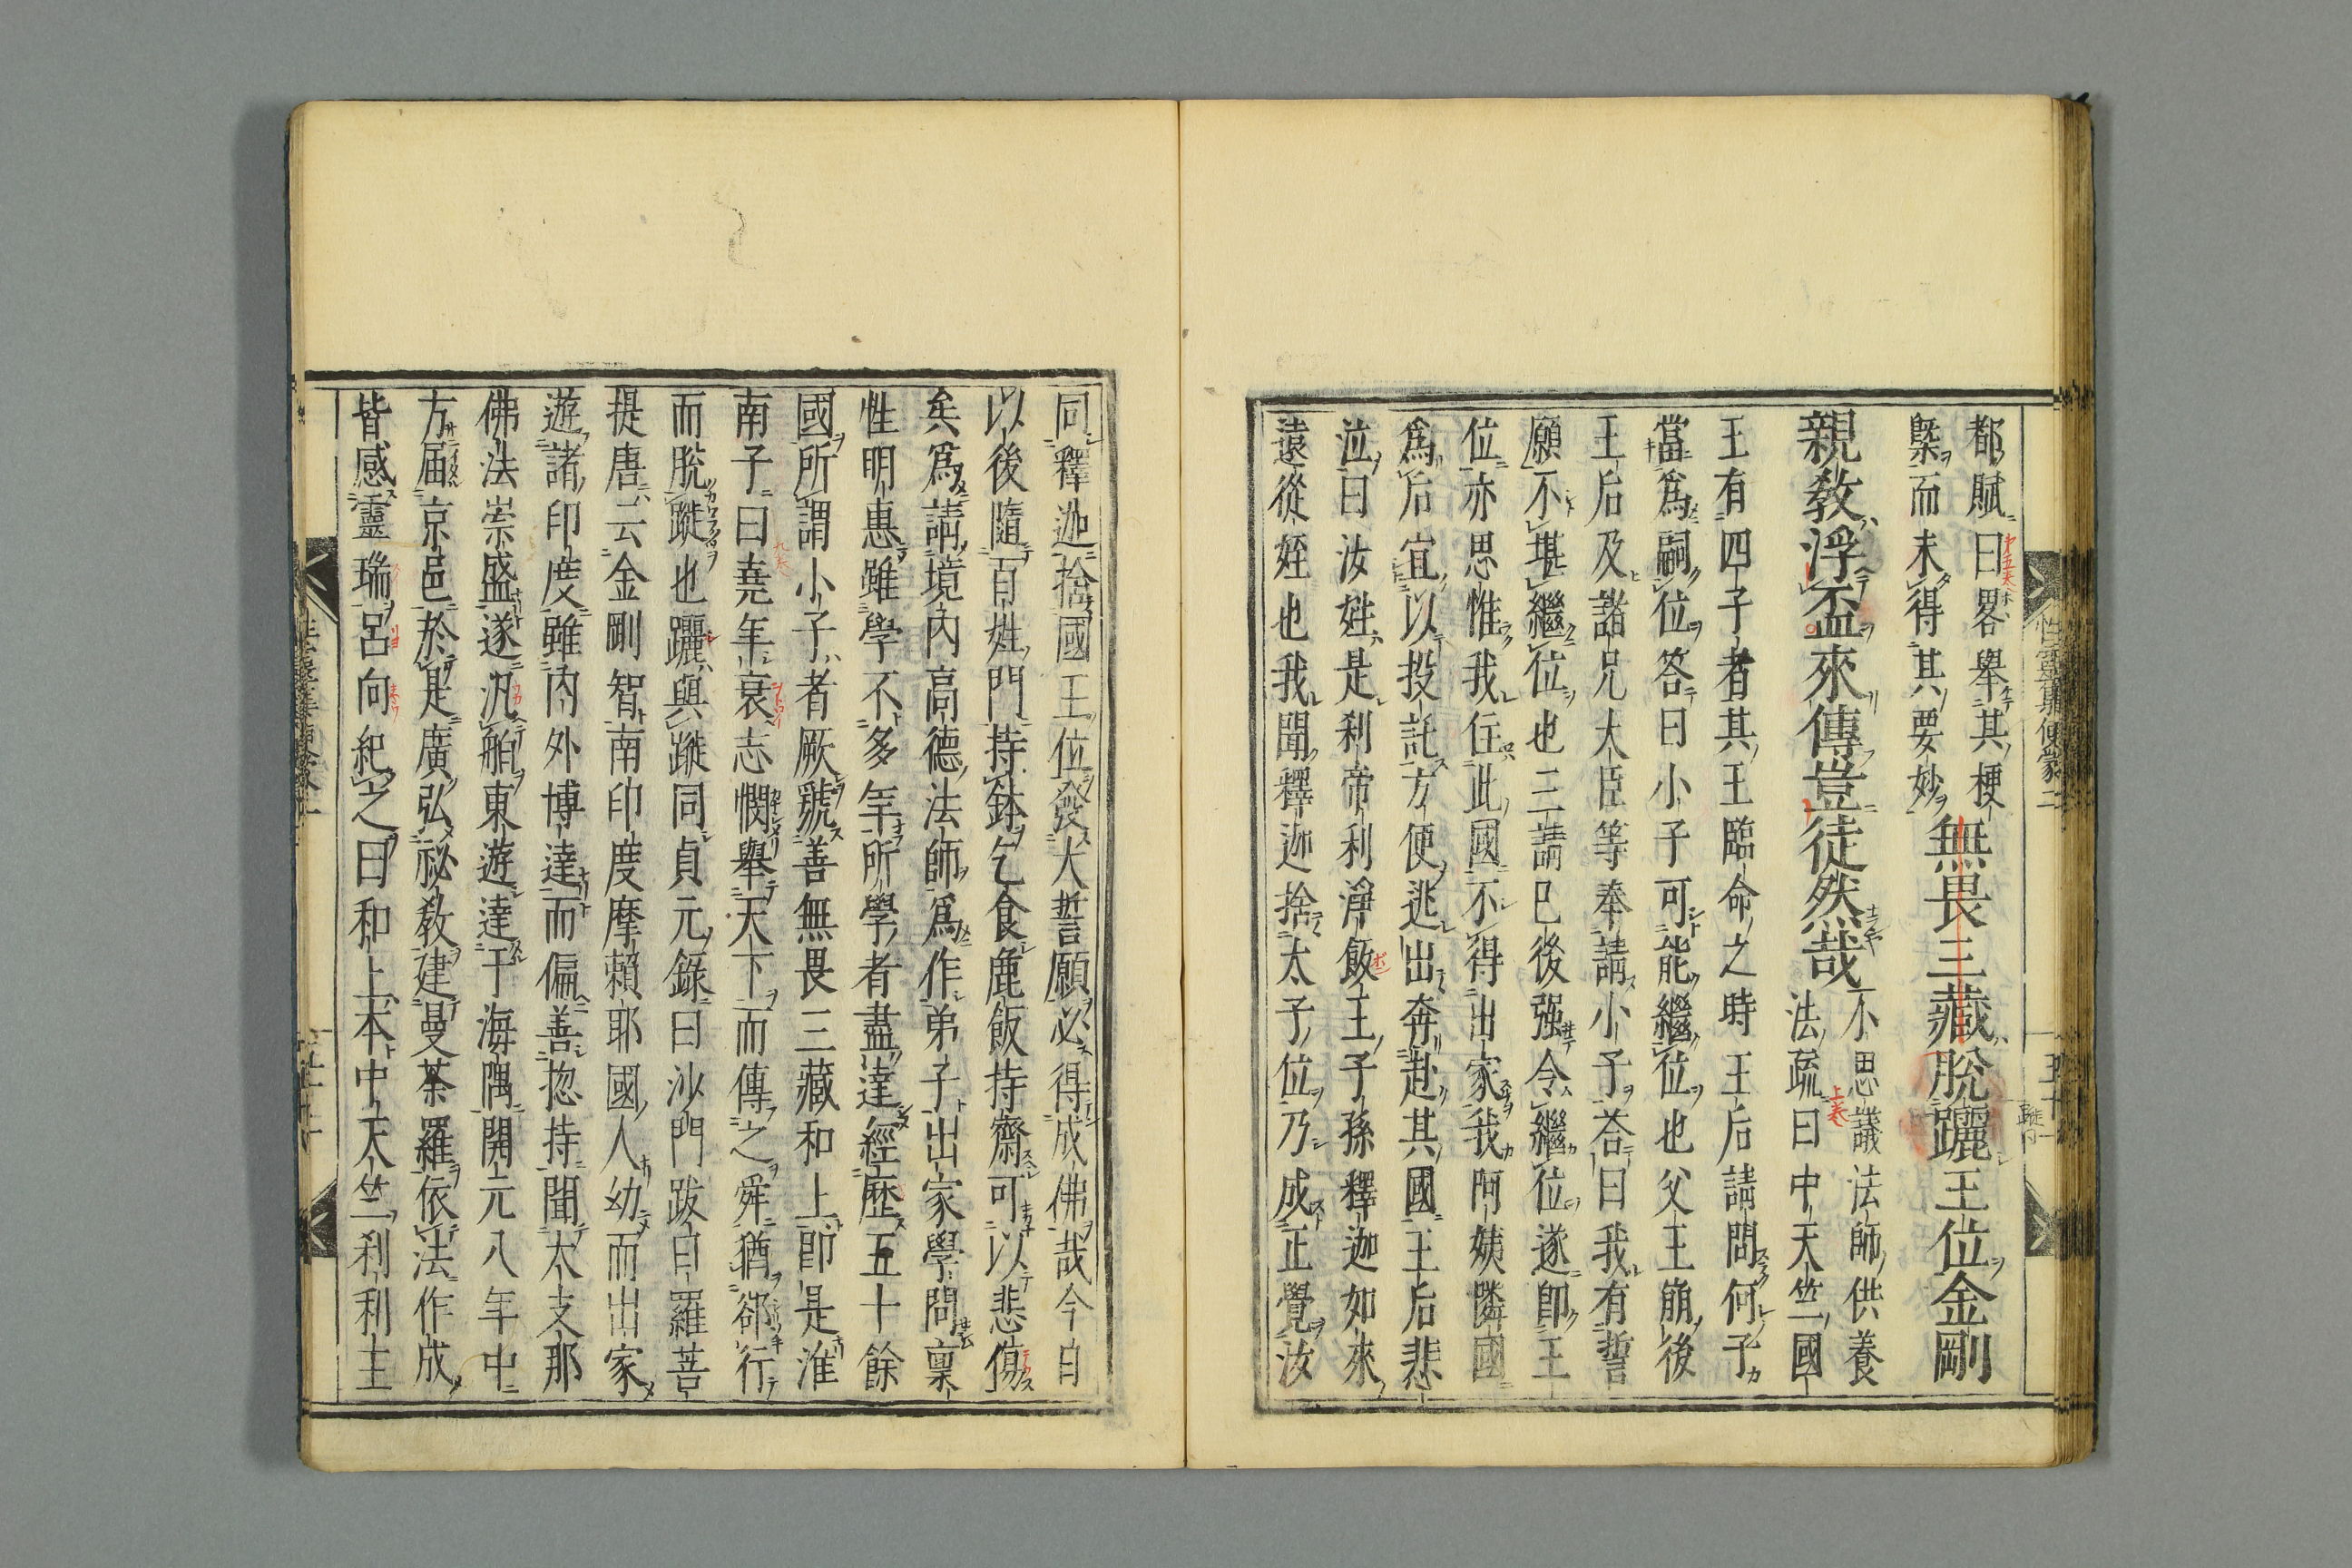 都賦曰畧舉其梗
槩而未得其要妙
無畏三藏脫躧王位金剛
親教浮盃來傳豈徒然哉
不思議法師供養
法疏曰中天竺國
王有四子者其王臨命之時王后請問何子
當爲嗣位答曰小子可能繼位也父王崩後
王后及諸兄大臣等奉請小子荅曰我有誓
願不堪繼位也三請已後强令繼位遂卽王
位亦思惟我住此國不得出家我阿姨隣國
爲后宜以投託方便逃出奔赴其國王后悲
泣曰汝姓是利帝利淨飯王子孫釋迦如來
遠從姪也我聞釋迦捨太子位乃成正覺汝
同釋迦捨國王位發大誓願必得成佛哉今日
以後隨百姓門持鉢乞食鹿飯持齋可以悲傷
矣爲請境內高德法師爲作弟子出家學問稟
性明惠雖學不多年所學者盡達經歷五十餘
國所謂小子者厥號善無畏三藏和上卽是淮
南子曰堯年衰志憫舉天下而傳之舜猶郤行
而脫蹝也躧與蹝同貞元錄曰沙門跋日羅菩
提唐云金剛智南印度摩賴耶國人幼而出家
遊諸印度雖內外博達而偏善揔持聞太支那
佛法崇盛遂汎舶東遊達于海隅開元八年中
方届京邑於是廣弘祕教建曼荼羅依法作成
皆感靈瑞呂向紀之曰和上本中天竺利利主
性靈集便蒙二
五十